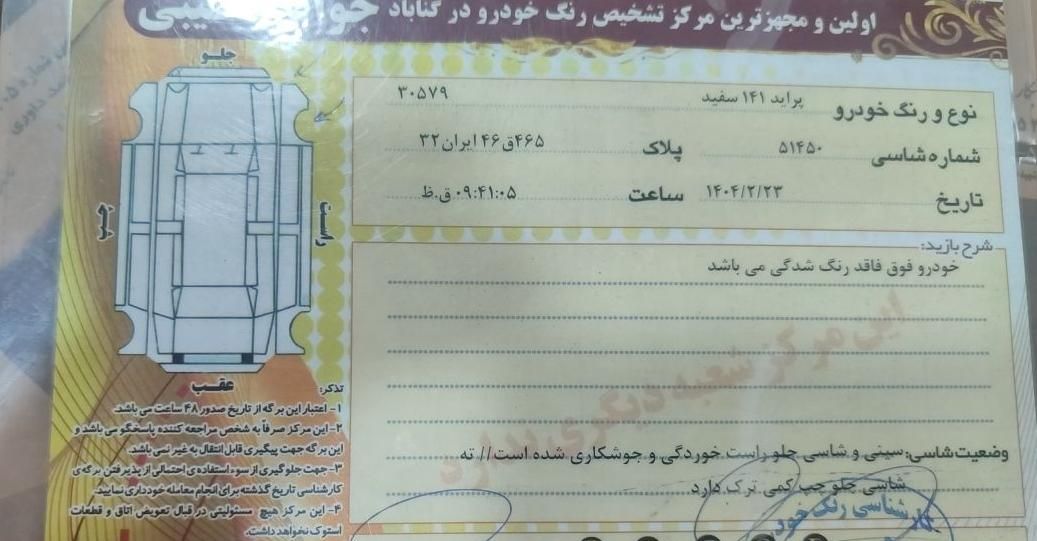 اولین و مجهزترین مرکز تشخیص رنگ خودرو در گناباد
جلو
راست
چپ
عقب
نوع و رنگ خودرو پراید ۱۴۱ سفید ۳۰۵۷۹
شماره شاسی ۵۱۴۵۰ پلاک ۴۶۵ق۴۶ ایران۳۲
تاریخ ۱۴۰۴/۲/۲۳ ساعت ۰۹:۴۱:۰۵ ق.ظ
شرح بازید:
خودرو فوق فاقد رنگ شدگی می باشد
این مرکز شعبه دیگری ندارد
وضعیت شاسی: سینی و شاسی جلو راست خوردگی و جوشکاری شده است// ته
شاسی جلو چپ کمی ترک دارد
کارشناسی رنگ خود
تذکر:
۱- اعتبار این برگه از تاریخ صدور ۴۸ ساعت می باشد.
۲- این مرکز صرفاً به شخص مراجعه کننده پاسخگو می باشد و
این برگه جهت پیگیری قابل انتقال به غیر نمی باشد.
۳- جهت جلوگیری از سوء استفاده ی احتمالی از پذیرفتن برگه ی
کارشناسی تاریخ گذشته برای انجام معامله خودداری نمایید.
۴- این مرکز هیچ مسئولیتی در قبال تعویض اتاق و قطعات
استوک نخواهد داشت.